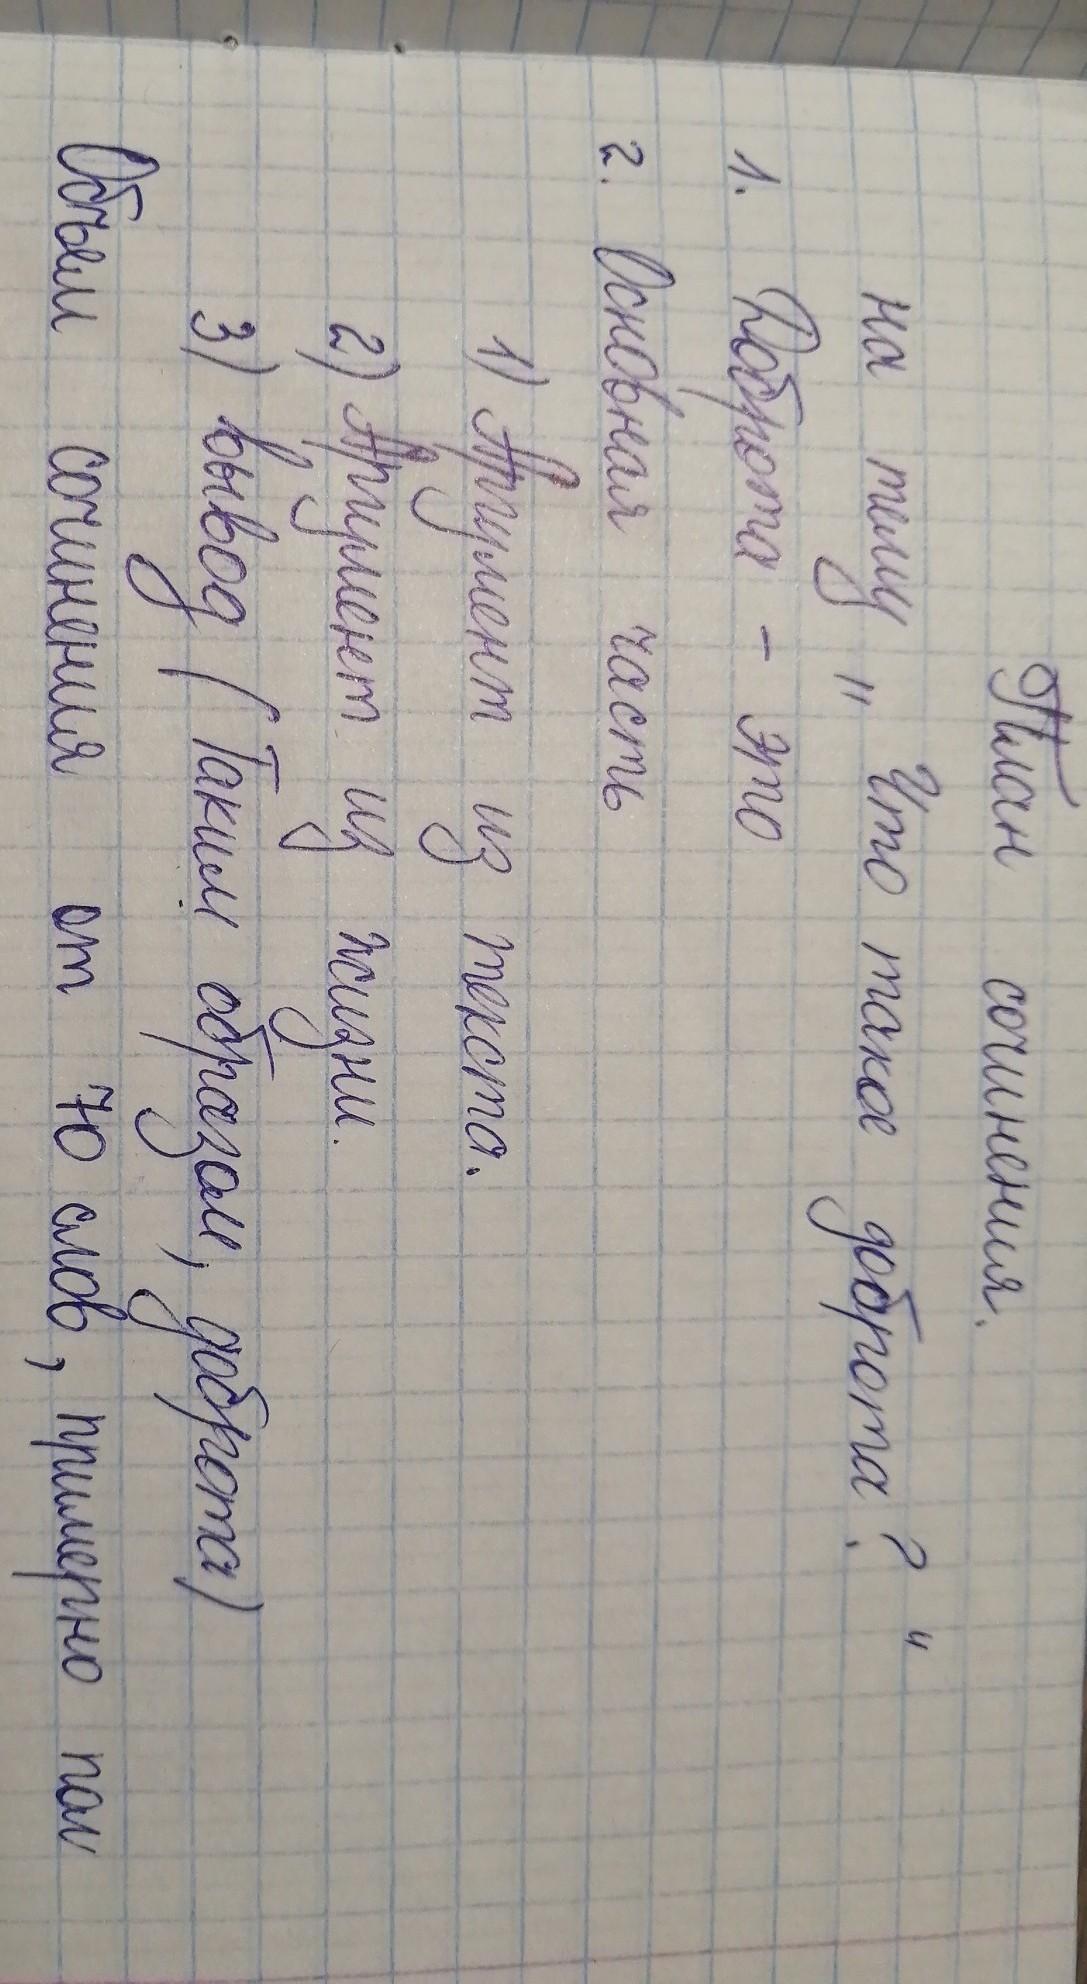 План сочинения.
на тему "Что такое доброта?"
1. Доброта - это
2. Основная часть
1) Аргумент из текста.
2) Аргумент из жизни.
3) вывод (Таким образом, доброта)
Объем сочинения от 70 слов, примерно пол